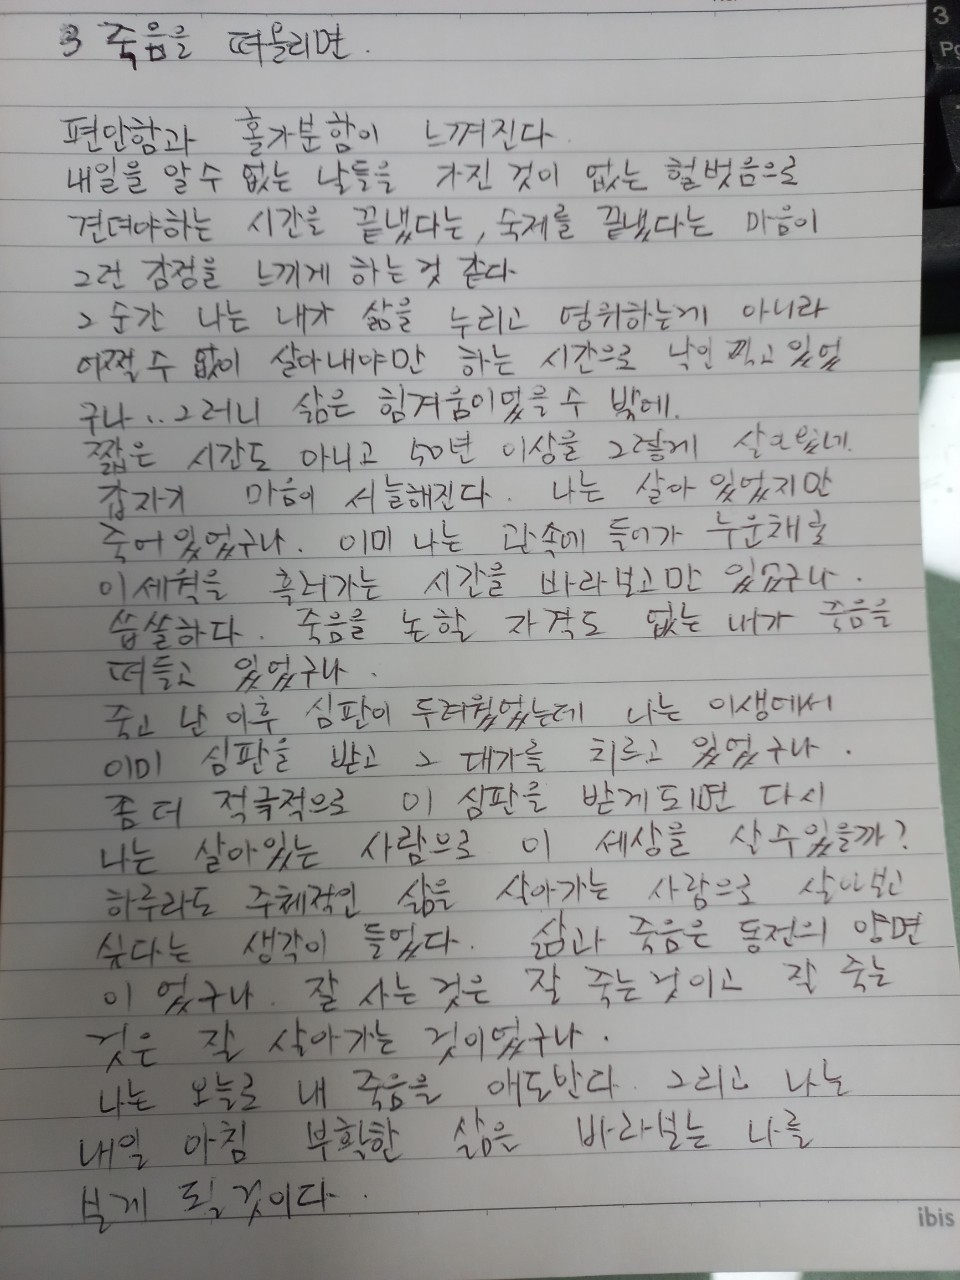 3 죽음을 떠올리면.
편안함과 홀가분함이 느껴진다.
내일을 알 수 없는 날들을 가진 것이 없는 헐벗음으로
견뎌야하는 시간을 끝냈다는, 숙제를 끝냈다는 마음이
그런 감정을 느끼게 하는것 같다
그 순간 나는 내가 삶을 누리고 영위하는게 아니라
어쩔 수 없이 살아내야만 하는 시간으로 낙인 찍고 있었
구나.. 그러니 삶은 힘겨움이었을 수 밖에.
짧은 시간도 아니고 50년 이상을 그렇게 살고있네.
갑자기 마음이 서늘해진다. 나는 살아 있었지만
죽어있었구나. 이미 나는 관속에 들어가 누운채로
이세월을 흘러가는 시간을 바라보고만 있었구나.
씁쓸하다. 죽음을 논할 자격도 없는 내가 죽음을
떠들고 있었구나.
죽고 난 이후 심판이 두려웠었는데 나는 이생에서
이미 심판을 받고 그 대가를 치르고 있었구나.
좀 더 적극적으로 이 심판을 받게되면 다시
나는 살아있는 사람으로 이 세상을 살수있을까?
하루라도 주체적인 삶을 살아가는 사람으로 살아보고
싶다는 생각이 들었다. 삶과 죽음은 동전의 양면
이었구나. 잘 사는것은 잘 죽는것이고 잘 죽는
것은 잘 살아가는 것이었구나.
나는 오늘로 내 죽음을 애도한다. 그리고 나는
내일 아침 부활한 삶은 바라보는 나를
보게 될것이다.
ibis
3